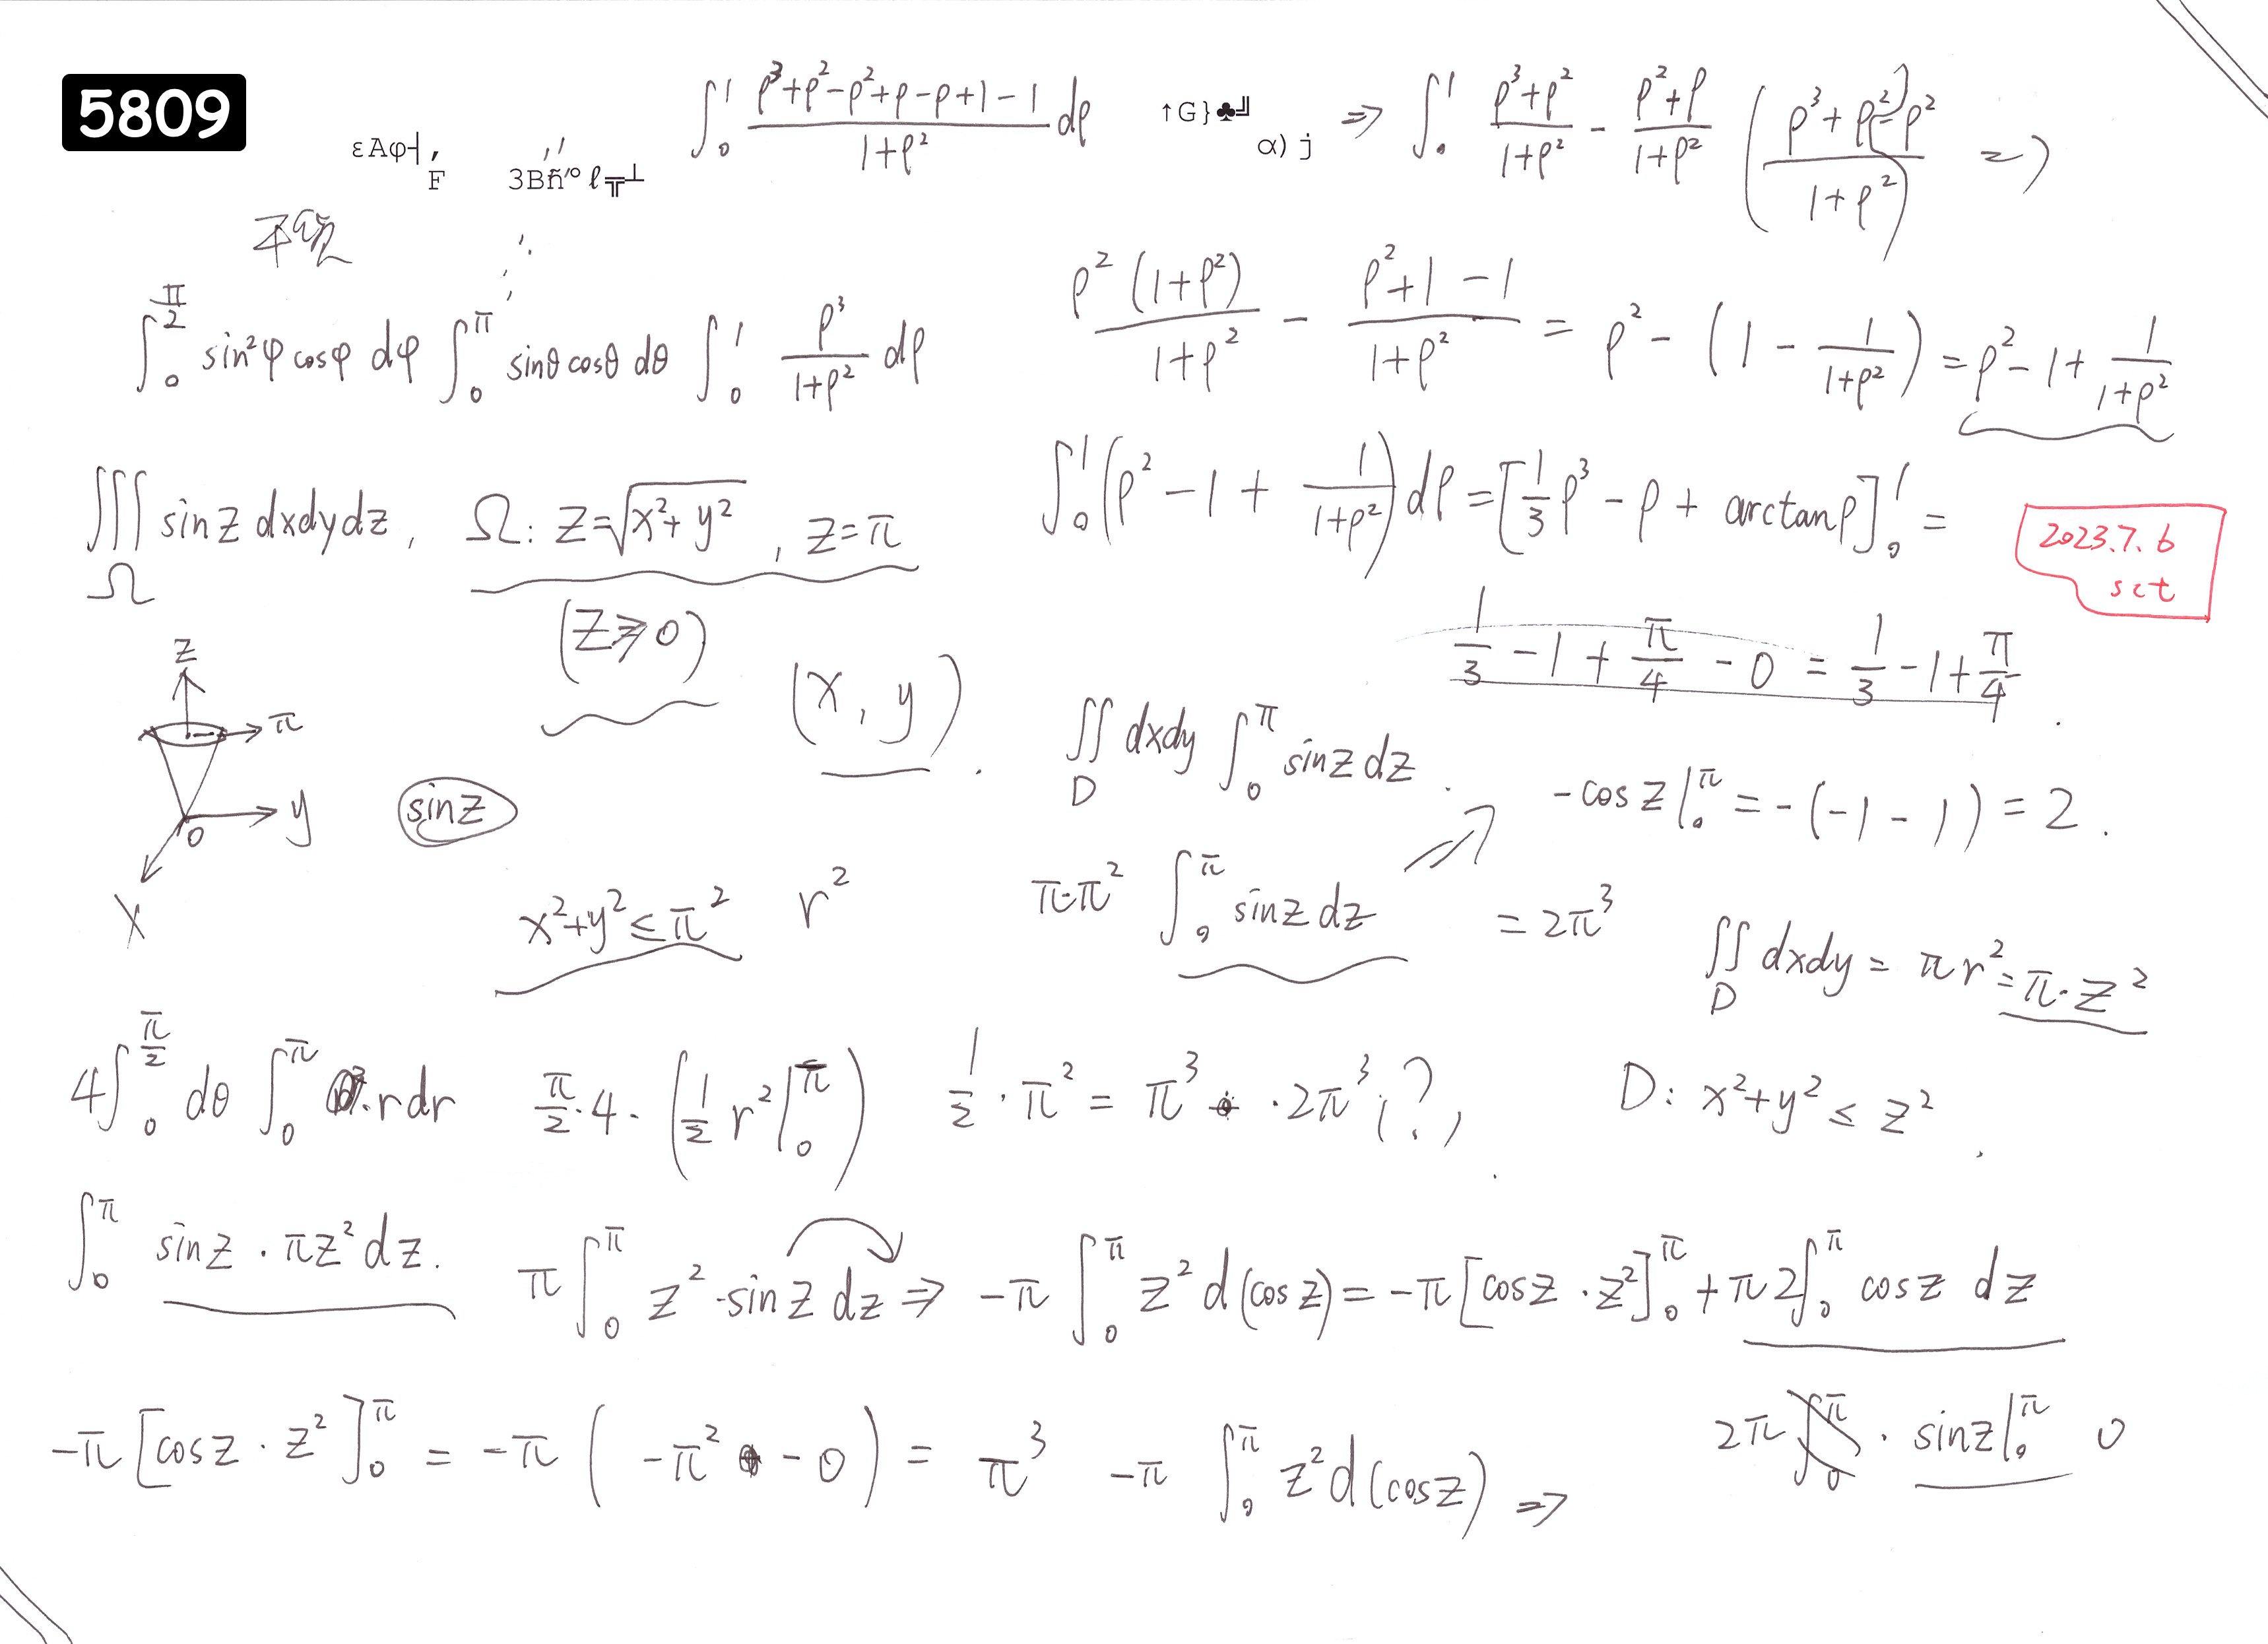 5809
∫₀¹ (ρ³+ρ²-ρ²+ρ-ρ+1-1)/(1+ρ²) dρ ⇒ ∫₀¹ (ρ³+ρ²)/(1+ρ²) - (ρ²+ρ)/(1+ρ²)
εAφ┤, F 3Bñ′° ℓ╥┴ ↑G}♣╝ α)j
∫₀^(π/2) sin²φ cosφ dφ ∫₀^π sinθ cosθ dθ ∫₀¹ ρ³/(1+ρ²) dρ
ρ²(1+ρ²)/(1+ρ²) - (ρ²+1-1)/(1+ρ²) = ρ² - (1 - 1/(1+ρ²)) = ρ²-1+ 1/(1+ρ²)
∭_Ω sinz dxdydz, Ω: z=√(x²+y²), z=π
(z≥0)
∫₀¹ (ρ²-1+ 1/(1+ρ²)) dρ = [1/3 ρ³ - ρ + arctanρ]₀¹ =
2023.7.6
sct
1/3 - 1 + π/4 - 0 = 1/3 - 1 + π/4.
z
π
y
0
x
sinz
(x, y).
∬_D dxdy ∫₀^π sinz dz.
-cosz|₀^π = -(-1-1) = 2.
x²+y² ≤ π² r²
π·π² ∫₀^π sinz dz = 2π³
∬_D dxdy = πr² = π·z²
4∫₀^(π/2) dθ ∫₀^π ·rdr π/2·4·(1/2 r²|₀^π) 1/2·π² = π³ ·2π³ (?,
D: x²+y² ≤ z².
∫₀^π sinz·πz²dz. π∫₀^π z²·sinz dz ⇒ -π∫₀^π z²d(cosz) = -π[cosz·z²]₀^π + π2∫₀^π cosz dz
-π[cosz·z²]₀^π = -π(-π² -0) = π³ -π∫₀^π z²d(cosz) ⇒
2π · sinz|₀^π 0